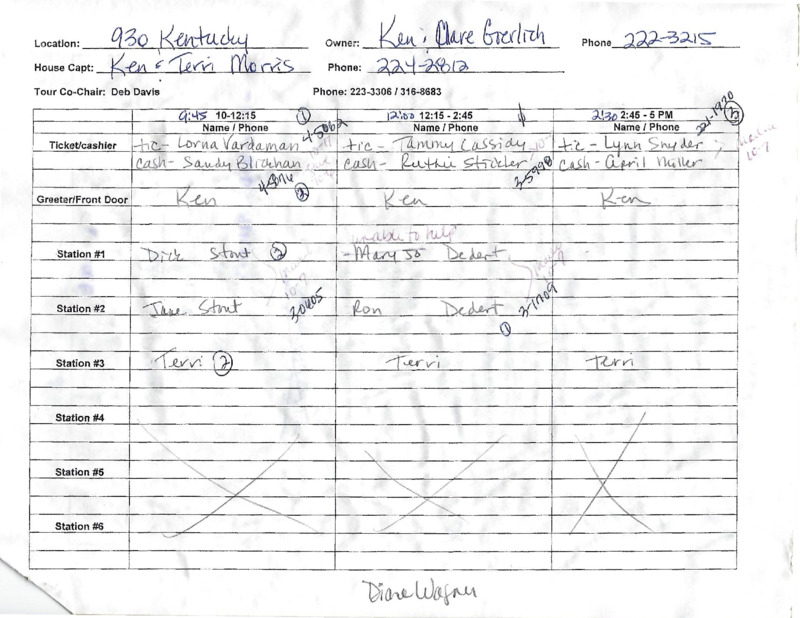 Location: 930 Kentucky Owner: Ken & Clare Goerlich Phone 222-3215
House Capt: Ken & Terri Morris Phone: 224-2812
Tour Co-Chair: Deb Davis Phone: 223-3306 / 316-8683
9:45 10-12:15 1 12:00 12:15 - 2:45 2:30 2:45 - 5 PM 221-1920 2
Name / Phone Name / Phone Name / Phone
Ticket/cashier tic- Lorna Vardaman 4-5062 tic- Tammy Cassidy tic- Lynn Snyder
cash- Sandy cash- Ruthie Stickler 3-5998 cash- April Miller 10-7
Greeter/Front Door Ken 2 Ken Ken
unable to help
Station #1 Dick Stout 2 -Mary Jo Dedert
10-7 10-7
Station #2 Jane Stout 3-0405 Ron Dedert 3-1709
1
Station #3 Terri 2 Terri Terri
Station #4
Station #5
Station #6
Diane Wagner